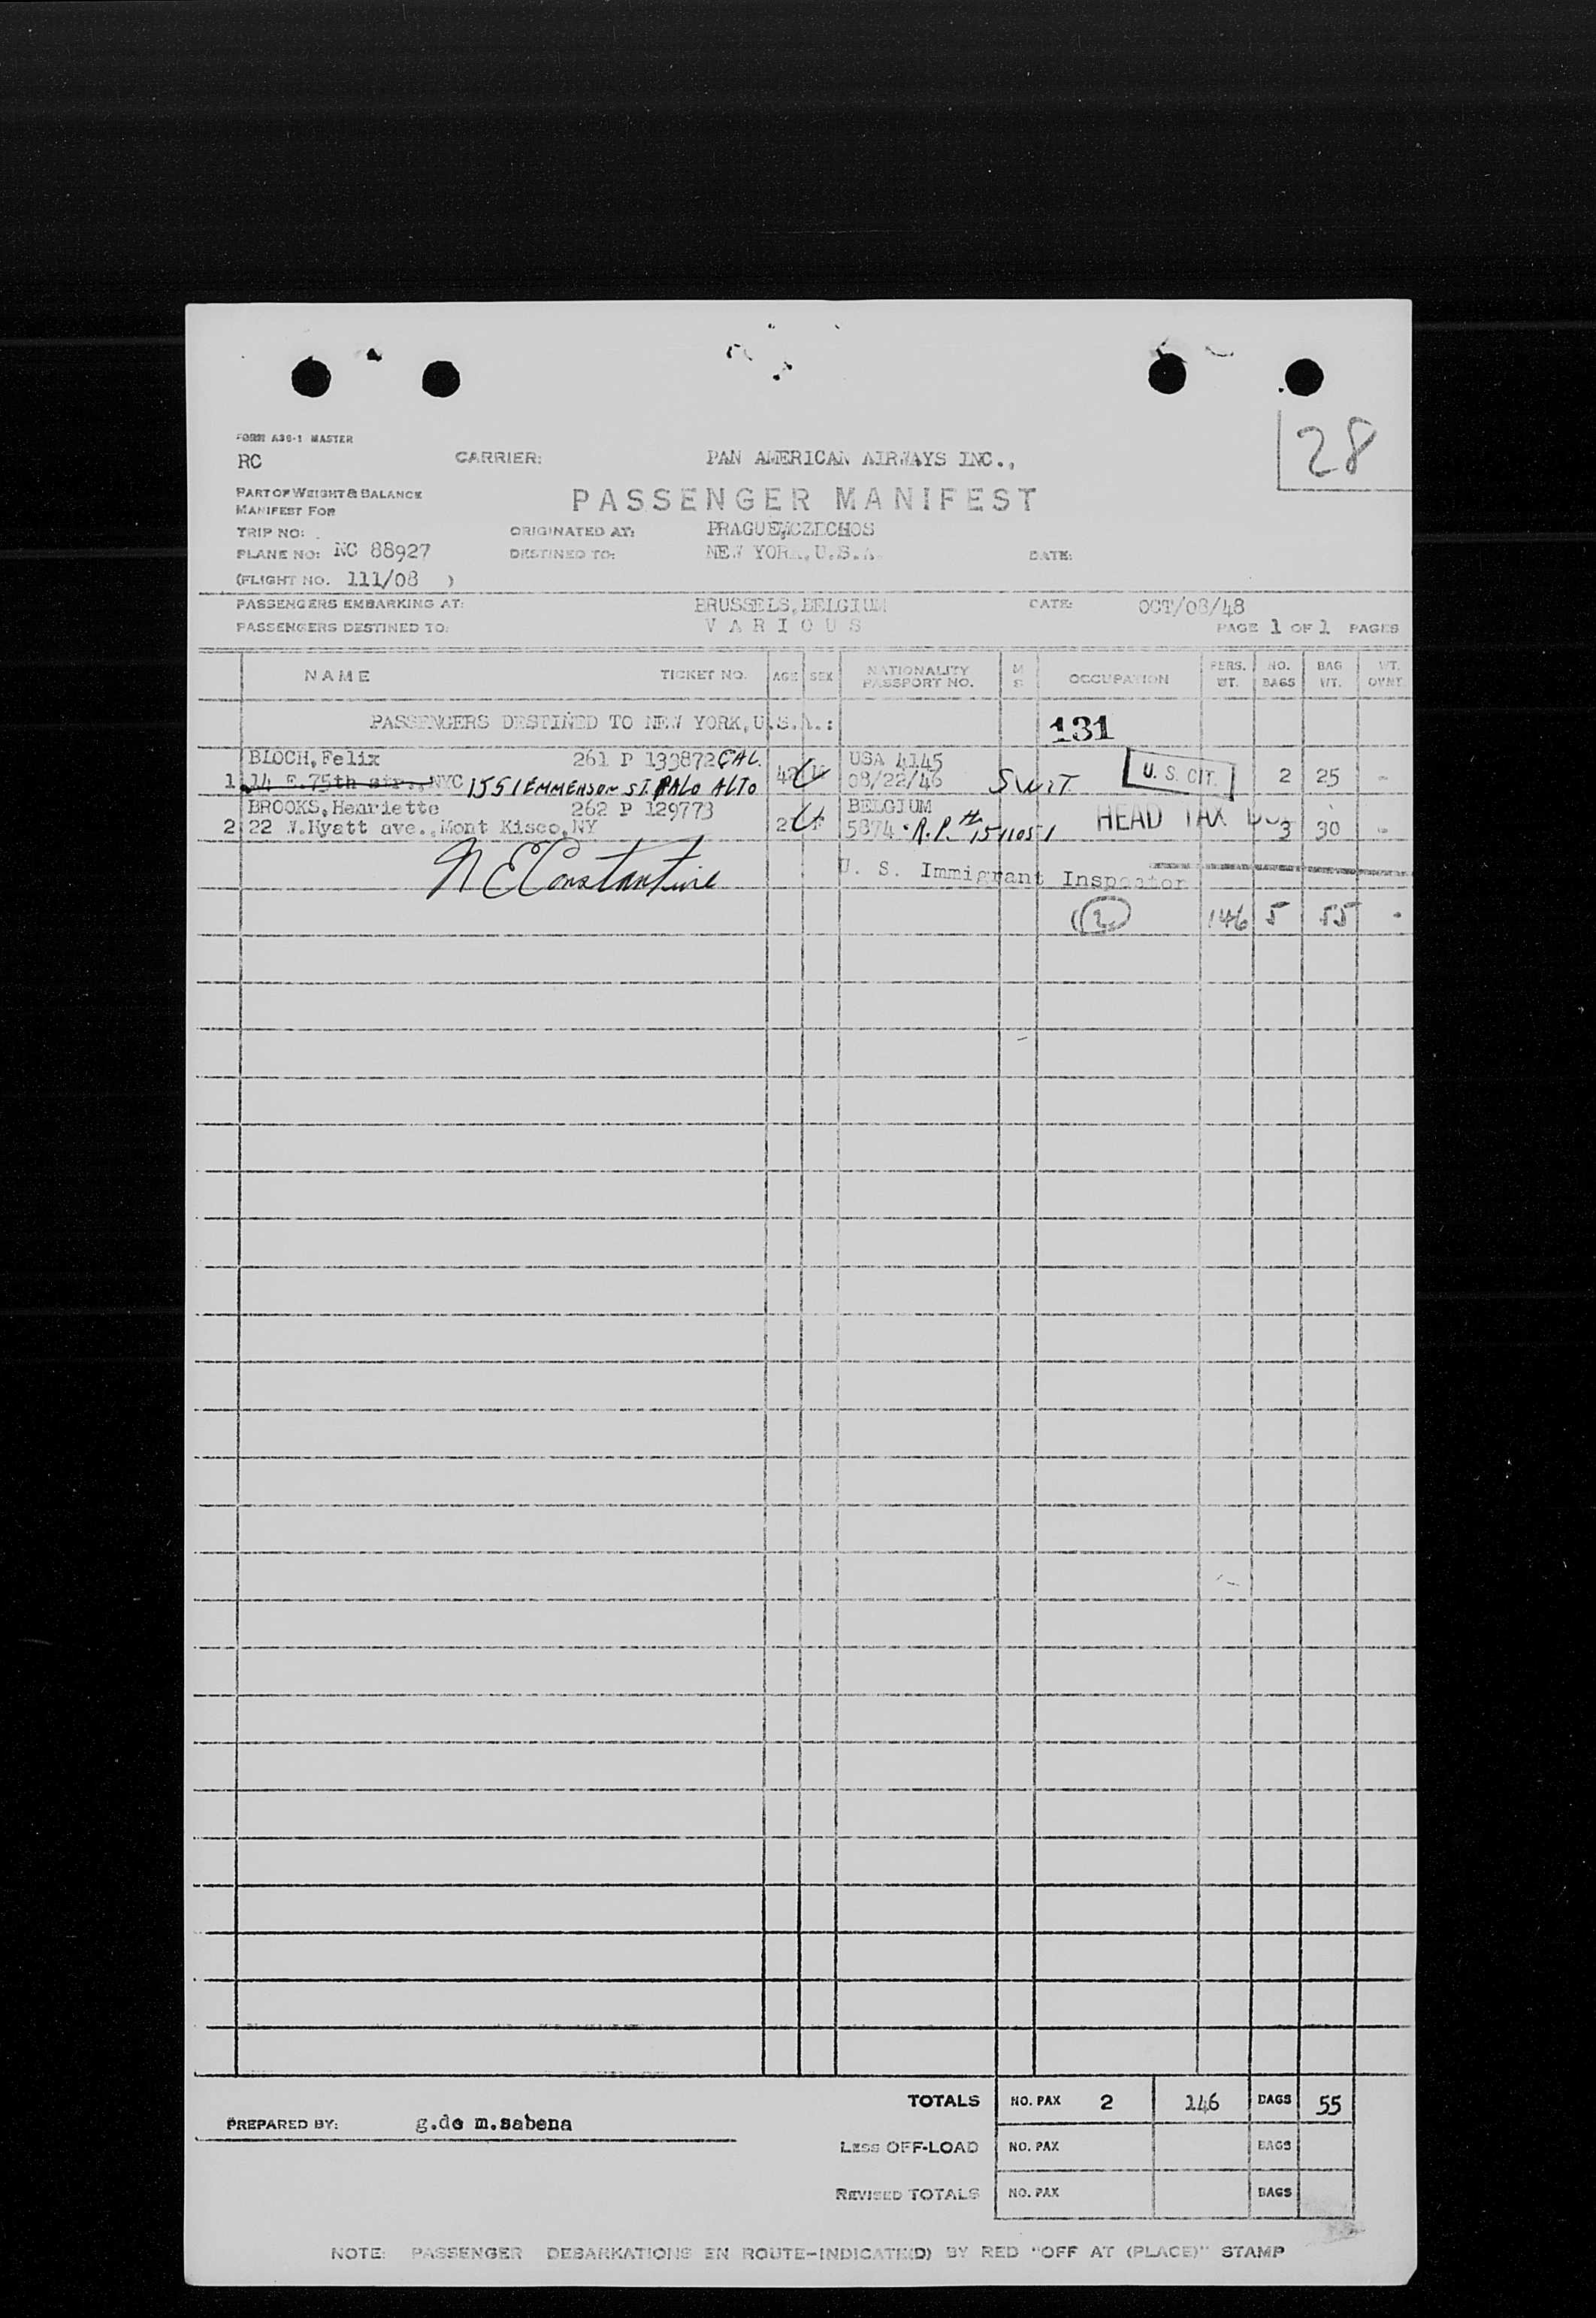 28
FORM A36-1 MASTER
RC CARRIER: PAN AMERICAN AIRWAYS INC.,
PART OF WEIGHT & BALANCE
MANIFEST FOR
PASSENGER MANIFEST
TRIP NO: ORIGINATED AT: PRAGUE,CZECHOS
PLANE NO: NC 88927 DESTINED TO: NEW YORK,U.S.A. DATE:
(FLIGHT NO. 111/08 )
PASSENGERS EMBARKING AT: BRUSSELS,BELGIUM DATE: OCT/08/48
PASSENGERS DESTINED TO: VARIOUS PAGE 1 OF 1 PAGES
NAME TICKET NO. AGE SEX NATIONALITY PASSPORT NO. M S OCCUPATION PERS. WT. NO. BAGS BAG WT. WT. OVNT.
PASSENGERS DESTINED TO NEW YORK,U.S.A.: 131
BLOCH,Felix 261 P 133872 CAL. USA 4145
1 14 E.75th str.,NYC 1551 EMMERSON ST. PALO ALTO 42 08/22/46 SWIT U. S. CIT. 2 25 -
BROOKS,Henriette 262 P 129773 BELGIUM
2 22 W.Hyatt ave.,Mont Kisco,NY F 5874 R.P. # 1511051 HEAD TAX 3 30 -
N E Constantine U. S. Immigrant Inspector
(2) 146 5 55 -
TOTALS NO. PAX 2 146 BAGS 55
PREPARED BY: g.de m.sabena
LESS OFF-LOAD NO. PAX BAGS
REVISED TOTALS NO. PAX BAGS
NOTE: PASSENGER DEBARKATIONS EN ROUTE-INDICATE(D) BY RED "OFF AT (PLACE)" STAMP